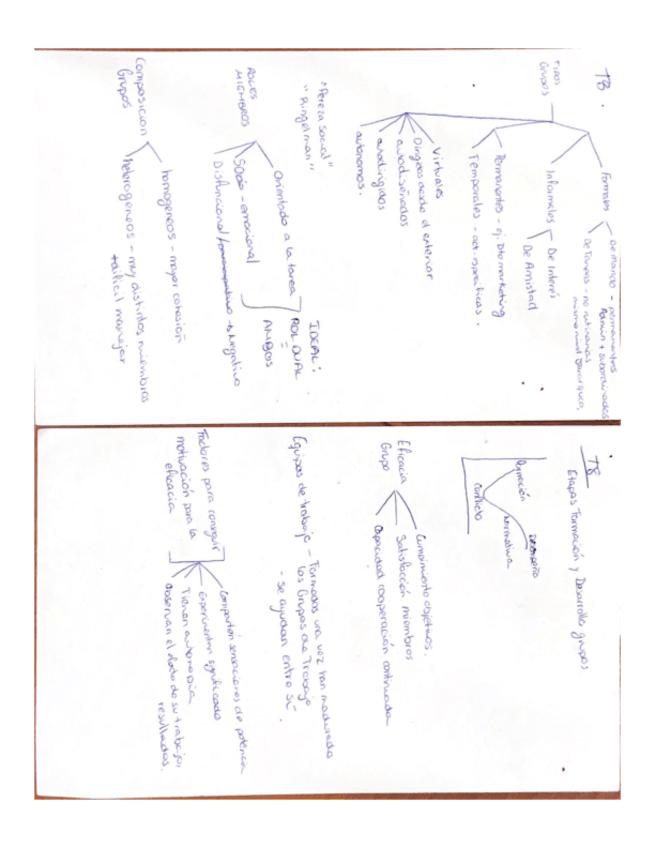 T8
Tipos Grupos
Formales
De mando - permanentes
Admin + subordinados
De Tareas - no rutinarias
mismo nivel jerárquico.
Informales
De Interés
De Amistad
Permanentes - ej. Dto marketing
Temporales - act. específicas.
Virtuales
Dirigidos desde el exterior
autodiseñados
autodirigidos
autónomos.
"Pereza social"
"Ringelman"
ROLES MIEMBROS
Orientado a la tarea
Socio-emocional
Disfuncional
→ Negativo
IDEAL:
ROL DUAL
=
AMBOS
Composición Grupos
homogeneos - mayor cohesión
heterogeneos - muy distintos miembros
+ dificil manejar
T8
Etapas Formación y Desarrollo grupos
Formación
Conflicto
Normativa
Desempeño
Eficacia Grupo
Cumplimiento objetivos.
Satisfacción miembros
Capacidad cooperación continuada
Equipos de trabajo - Formados una vez han madurado
los Grupos de Trabajo
- se ayudan entre sí.
Factores para conseguir
motivación para la
eficacia
Comparten sensaciones de potencia
Experimenten significado
Tienen autonomía
Observan el efecto de su trabajo,
resultados.